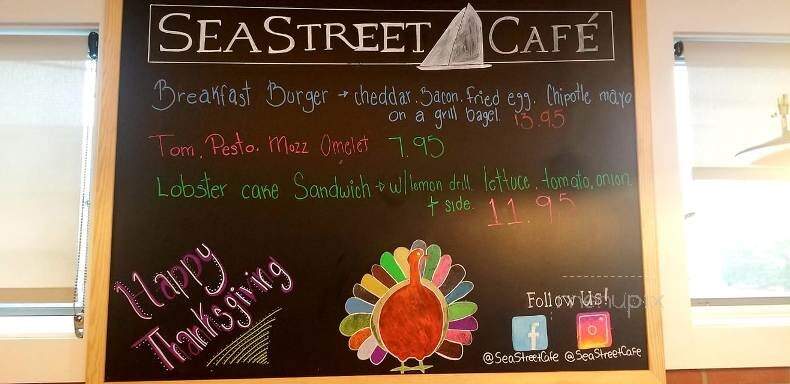 SEA STREET CAFÉ
Breakfast Burger → cheddar. Bacon. fried egg. Chipotle mayo
on a grill bagel. 13.95
Tom. Pesto. Mozz Omelet 7.95
Lobster cake Sandwich → w/ lemon drill. lettuce. tomato, onion
+ side. 11.95
Happy
Thanksgiving
Follow Us!
menupix
@SeaStreetCafe @SeaStreetCafe